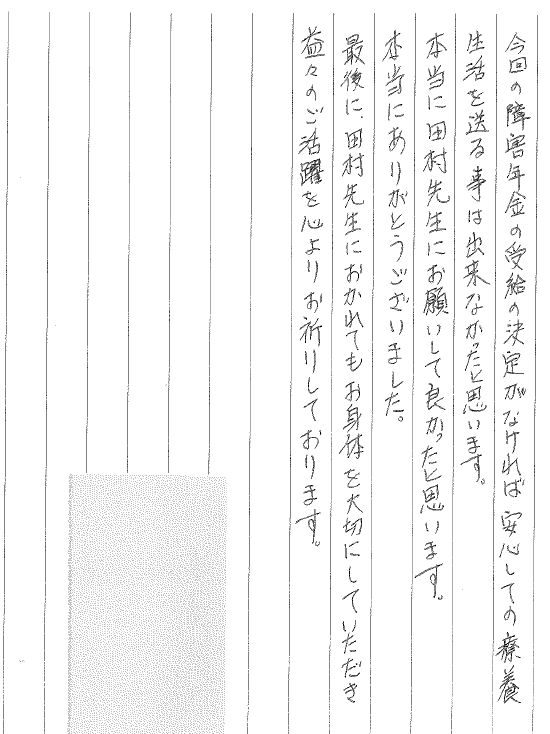 今回の障害年金の受給の決定がなければ安心しての療養
生活を送る事は出来なかったと思います。
本当に田村先生にお願いして良かったと思います。
本当にありがとうございました。
最後に、田村先生におかれてもお身体を大切にしていただき
益々のご活躍を心よりお祈りしております。